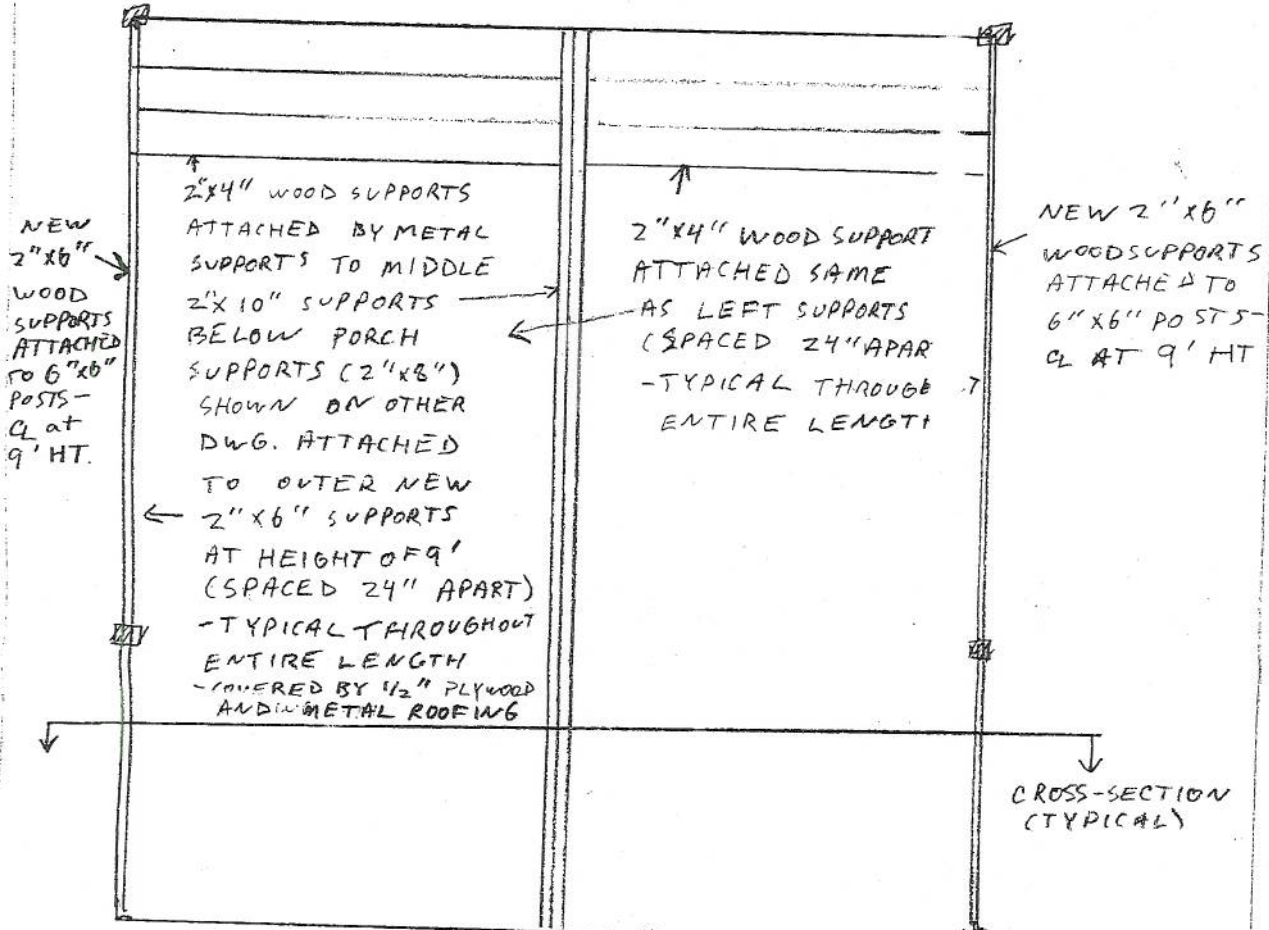 NEW
2"x6"
WOOD
SUPPORTS
ATTACHED
TO 6"x6"
POSTS-
CL at
9' HT.
2"x4" WOOD SUPPORTS
ATTACHED BY METAL
SUPPORTS TO MIDDLE
2"x10" SUPPORTS
BELOW PORCH
SUPPORTS (2"x8")
SHOWN ON OTHER
DWG. ATTACHED
TO OUTER NEW
2"x6" SUPPORTS
AT HEIGHT OF 9'
(SPACED 24" APART)
-TYPICAL THROUGHOUT
ENTIRE LENGTH
-COVERED BY 1/2" PLYWOOD
AND METAL ROOFING
2"x4" WOOD SUPPORT
ATTACHED SAME
AS LEFT SUPPORTS
(SPACED 24" APAR
-TYPICAL THROUGH
ENTIRE LENGTH
NEW 2"x6"
WOOD SUPPORTS
ATTACHED TO
6"x6" POSTS-
CL AT 9' HT
CROSS-SECTION
(TYPICAL)